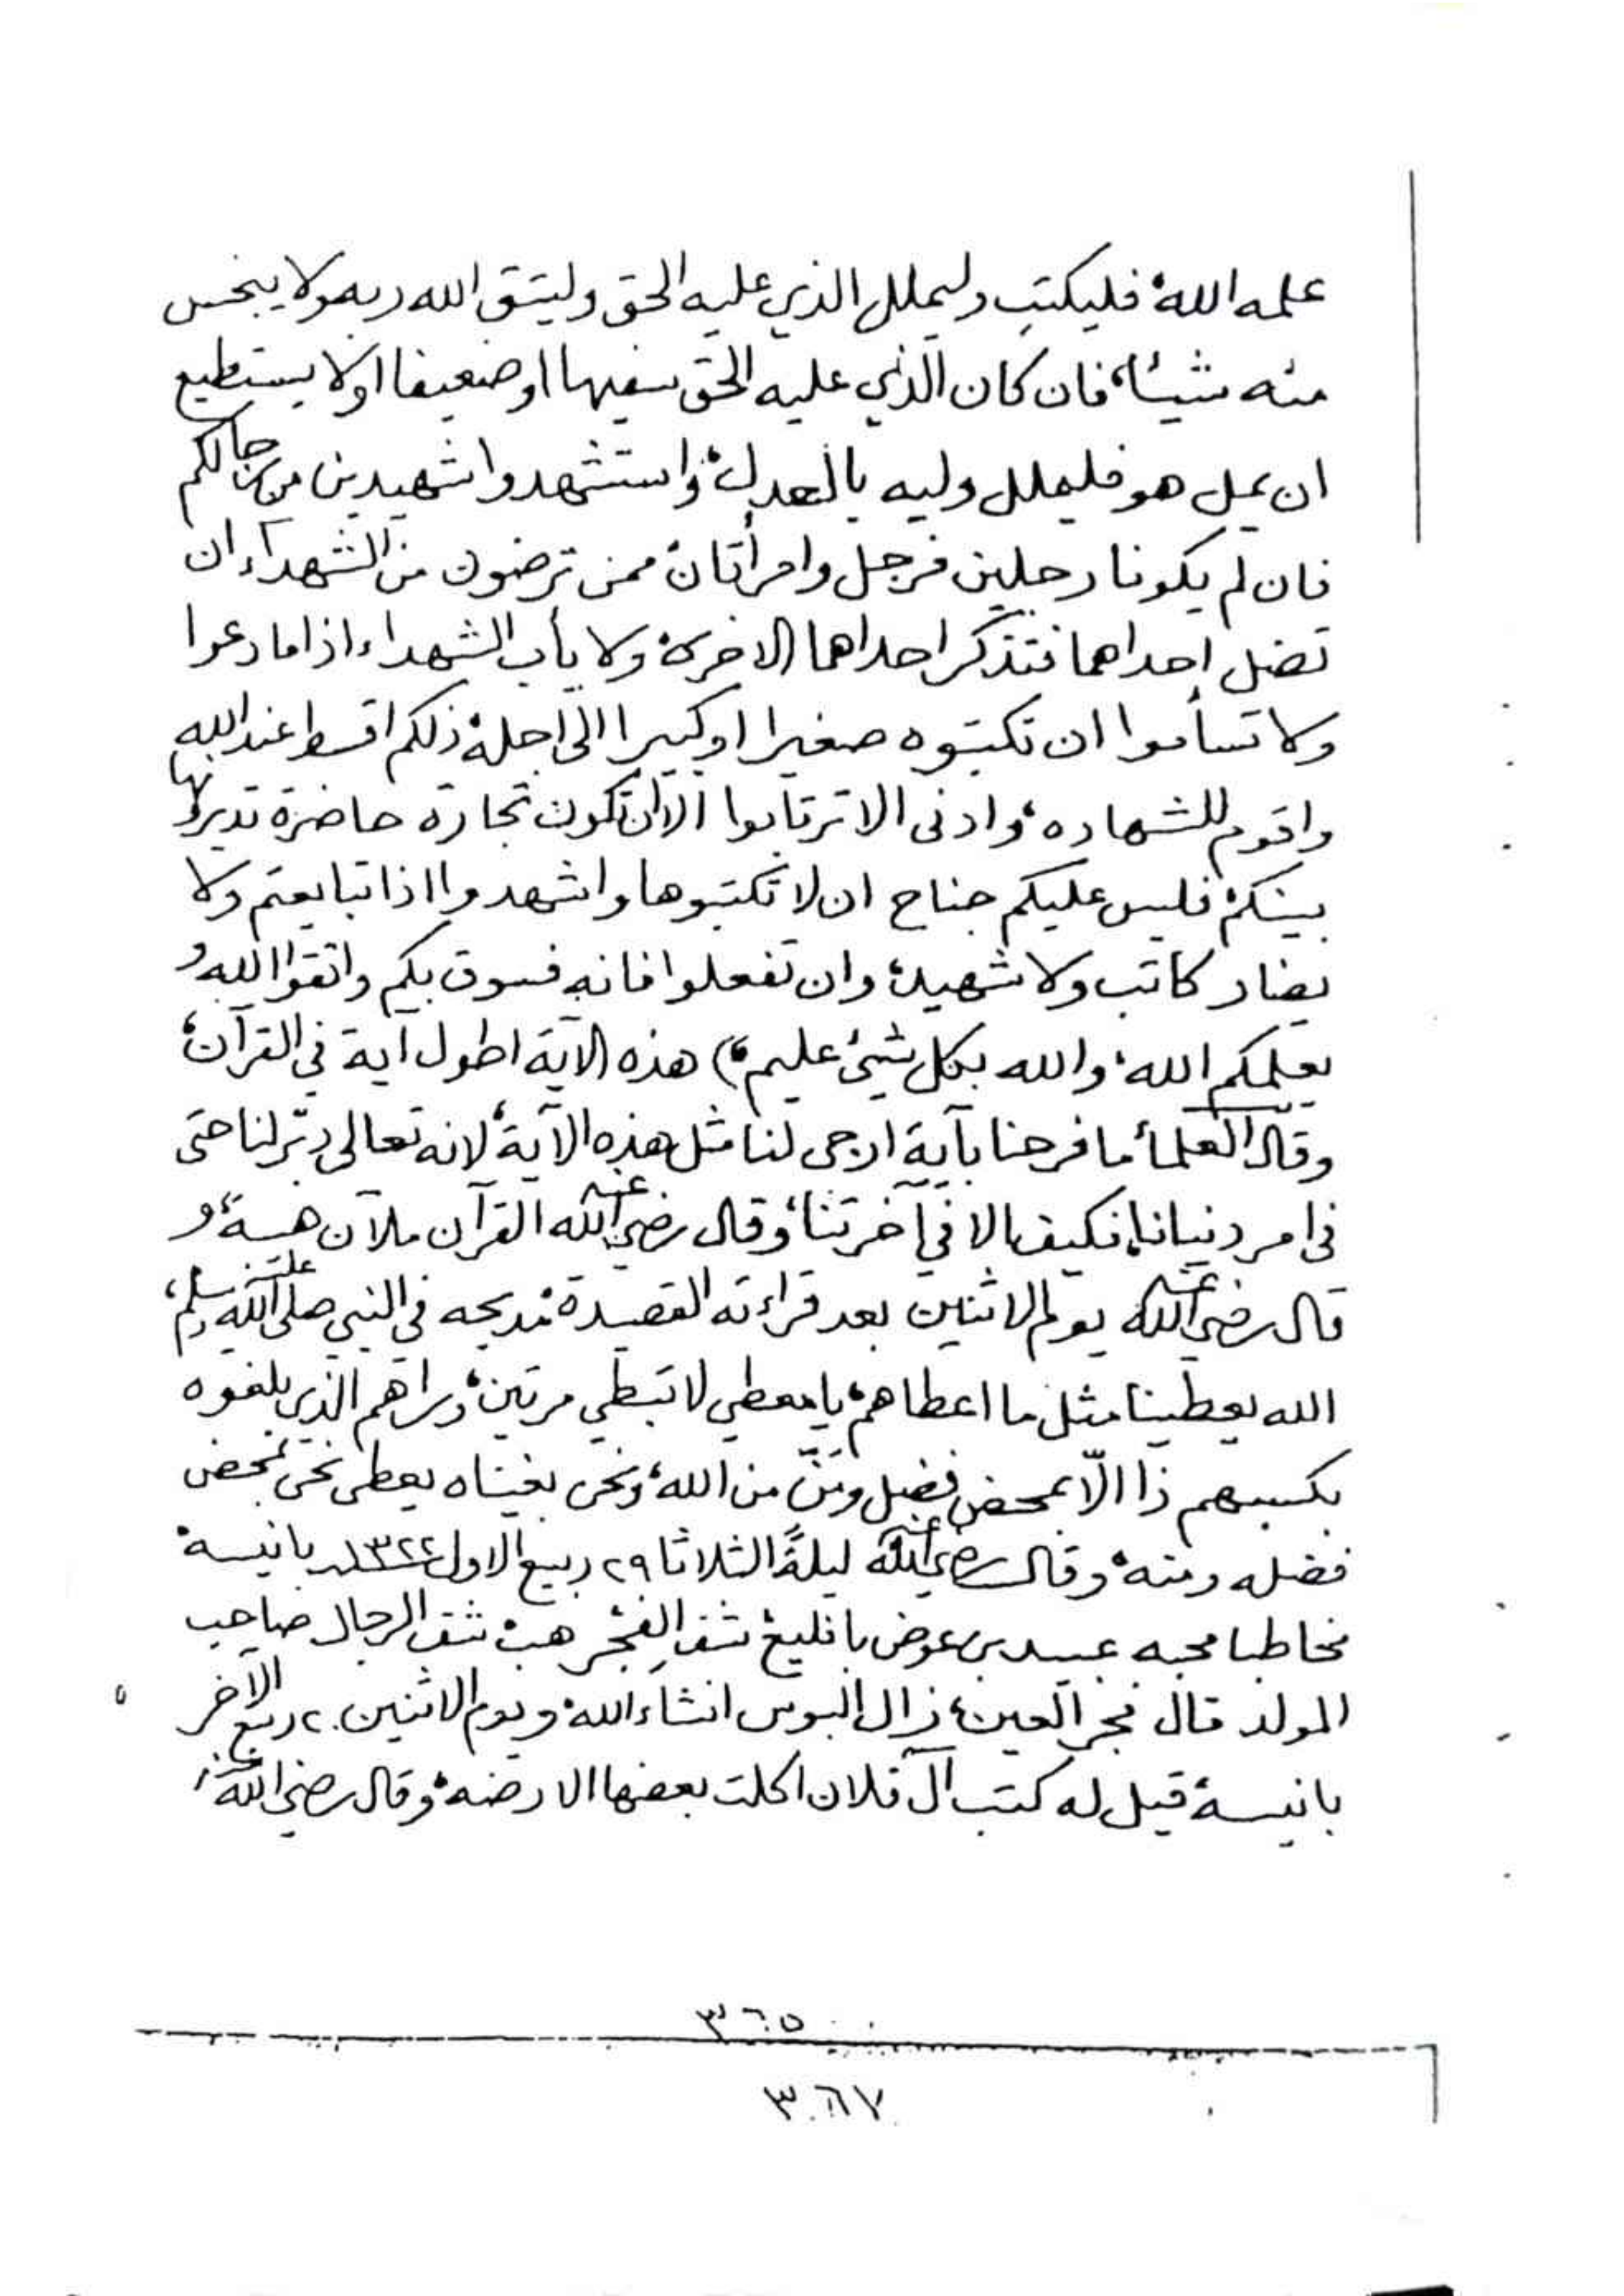 علمه الله، فليكتب وليملل الذي عليه الحق وليتق الله ربه ولا يبخس
منه شيئا، فان كان الذي عليه الحق سفيها او ضعيفا او لا يستطيع
ان يمل هو فليملل وليه بالعدل، واستشهدوا شهيدين من رجالكم
فان لم يكونا رجلين فرجل وامرأتان ممن ترضون من الشهدآء ان
تضل احداهما فتذكر احداهما الاخرى، ولا يأب الشهداء اذا ما دعوا
ولا تسأموا ان تكتبوه صغيرا او كبيرا الى اجله، ذلكم اقسط عند الله
واقوم للشهاده، وادنى الا ترتابوا الا ان تكون تجارة حاضرة تديرونها
بينكم، فليس عليكم جناح ان لا تكتبوها واشهدوا اذا تبايعتم ولا
يضار كاتب ولا شهيد، وان تفعلوا فانه فسوق بكم واتقوا الله و
يعلمكم الله، والله بكل شيئ عليم،) هذه الآية اطول آية في القرآن،
وقال العلمأ ما فرحنا بآية ارجى لنا مثل هذه الآية، لانه تعالى دبّر لنا حتى
في امر دنيانا، فكيف الا في آخرتنا، وقال رضي الله عنه القرآن ملآن هيبة، و
قال رضي الله عنه يوم الاثنين بعد قراءته القصيدة مديحه في النبي صلى الله عليه وسلم،
الله يعطينا مثل ما اعطاهم، يا معطي لا تبطي مرتين، وراهم الذي بلغوه
بكسبهم ذا الّا بمحض فضل ومَنّ من الله، ونحن بغيناه يعطي نحن بمحض
فضله ومنه، وقال رضي الله عنه ليلةً الثلاثا ٢٩ ربيع الاول ١٣٢٢ﻫ بانيسة،
مخاطبا محبه عبيد بن عوض بافليع شف الفجر هب، شف الرجال صاحب
المولد قال فجر العين، زال البوس انشاءالله، ويوم الاثنين ٢٠ ربيع الآخر
بانيسة، قيل له كتب آل فلان اكلت بعضها الارضه، وقال رضي الله عنه،
٣٦٥
٣٦٧